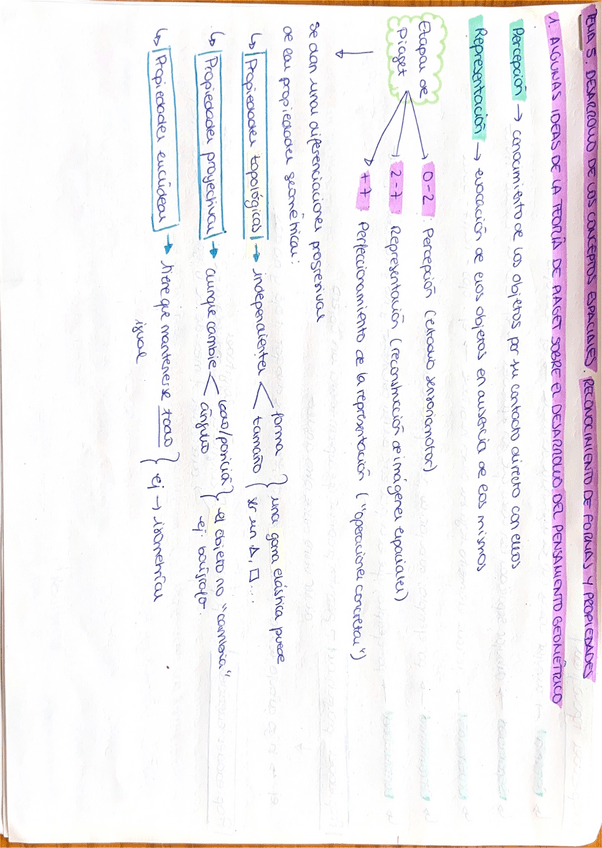 TEMA 5: DESARROLLO DE LOS CONCEPTOS ESPACIALES. RECONOCIMIENTO DE FORMAS Y PROPIEDADES
1. ALGUNAS IDEAS DE LA TEORÍA DE PIAGET SOBRE EL DESARROLLO DEL PENSAMIENTO GEOMÉTRICO
Percepción → conocimiento de los objetos por su contacto directo con ellos
Representación → evocación de esos objetos en ausencia de los mismos
Etapas de Piaget
0-2: Percepción (estadio sensoriomotor)
2-7 Representación (reconstrucción de imágenes espaciales)
+7 Perfeccionamiento de la representación ("operaciones concretas")
Se dan unas diferenciaciones progresivas
de las propiedades geométricas:
↳ Propiedades topológicas → independientes < forma tamaño } una goma elástica puede ser un △, □...
↳ Propiedades proyectivas → aunque cambie < lado/posición ángulo } el objeto no "cambia" ej: bolígrafo.
↳ Propiedades euclídeas → tiene que mantenerse todo igual } ej → isometrías